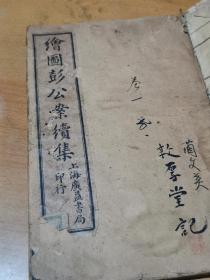 繪圖彭公案續集
上海廣益書局
印行
卷一
敦厚堂記